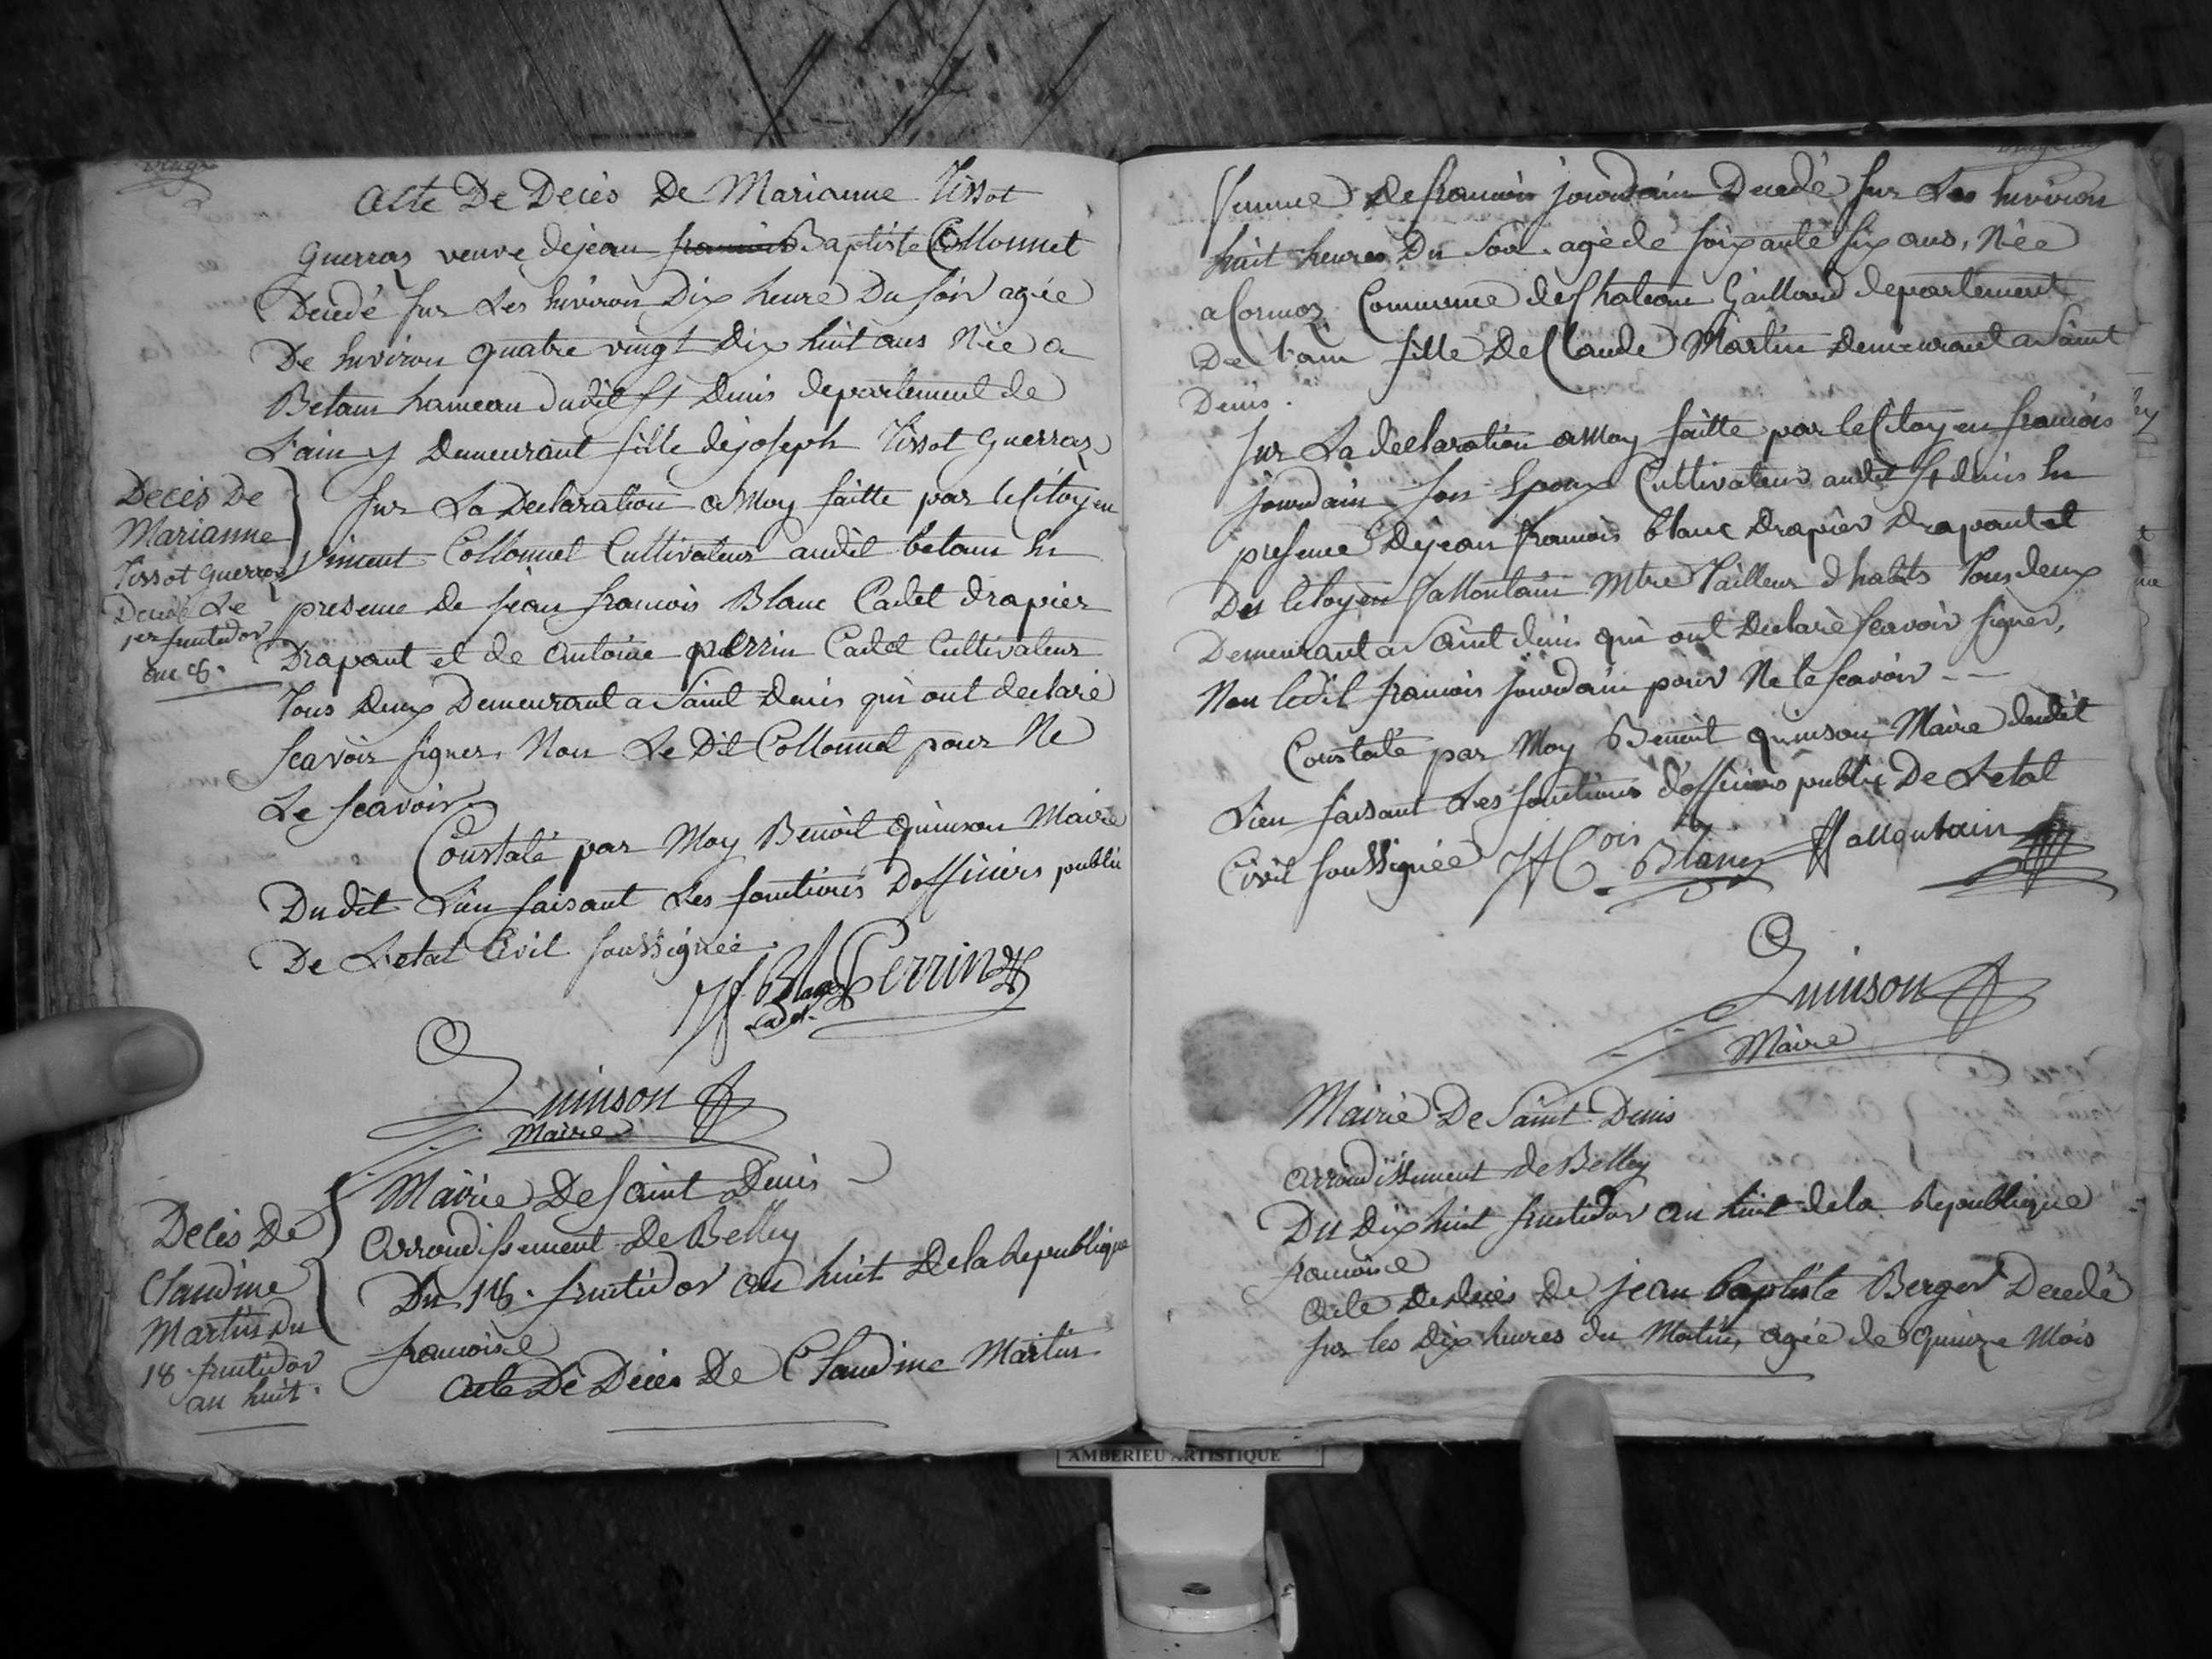 Acte De Decès De Marianne Tissot
Guerraz veuve dejean francois Baptiste Collonnet
Decedé sur Les Environ Dix heure Du soir agée
De Environ quatre vingt Dix huit ans Née a
Betans hameau dudit St Denis departement de
L'ain y Demeurant fille dejoseph Tissot Guerraz
Sur La Declaration a Moy faitte par le Citoyen
Vincent Collonnet Cultivateur audit betans En
presence de jean francois Blanc Cadet drapier
Drapant et de antoine perrin Cadet Cultivateur
Tous deux Demeurant a Saint Denis qui ont declaré
Scavoir signer, Non Le Dit Collonnet pour Ne
Le scavoir
Constaté par Moy Benoit Quinson Maire
Du dit Lieu faisant Les fonctions D'officiers public
De L'etat Civil soussignée
Jf Blanc Perrin
cadet
Quinson
Maire
Decès De
Marianne
Tissot Guerraz
Decedé Le
1er fructidor
an 8.
Mairie De Saint Denis
Arrondissement De Belley
Du 18. fructidor an huit De la Republique
francoise
Acte De Decès De Claudine Martin
Decès De
Claudine
Martin du
18 fructidor
an huit.
femme de francois jourdain Decedé sur Les Environ
huit heures Du Soir agé de soixante six ans, Née
a Cormoz Commune de Chateau Gaillard departement
De L'ain fille De Claude Martin demeurant a Saint
Denis.
Sur La declaration a Moy faitte par le Citoyen francois
jourdain son Epoux Cultivateur audit St denis En
presence dejean francois blanc drapier drapant et
Du Citoyen Vallontain Mtre Tailleur d'habits Tous deux
Demeurant a Saint denis qui ont declaré scavoir signer,
Non ledit francois jourdain pour Ne le scavoir
Constaté par Moy Benoit quinson Maire dudit
Lieu faisant Les fonctions d'officiers public De L'etat
Civil soussignée Jfcois Blanc
Quinson
Maire
Mairie De Saint Denis
Arrondissement de Belley
Du Dix huit fructidor an huit de la Republique
francoise
Acte de decès de jean baptiste Berger Decedé
sur les dix heures du Matin, agée de quinze Mois
AMBERIEU ARTISTIQUE